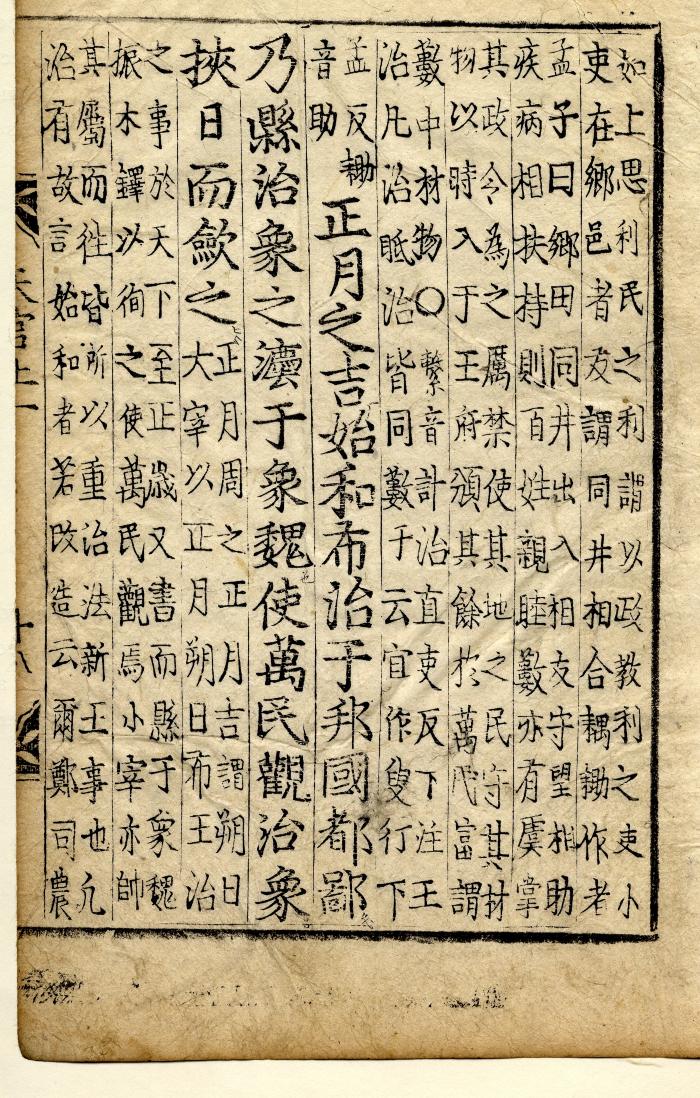 如上思利民之利謂以政教利之吏小
吏在鄉邑者友謂同井相合耦耡作者
孟子曰鄉田同井出入相友守望相助
疾病相扶持則百姓親睦藪亦有虞掌
其政令為之厲禁使其地之民守其材
物以時入于王府頒其餘於萬民富謂
藪中材物○繫音計治直吏反下注王
治凡治眡治皆同藪干云宜作叟行下
孟反耡
音助
正月之吉始和布治于邦國都鄙
乃縣治象之灋于象魏使萬民觀治象
挾日而歛之
正月周之正月吉謂朔日
大宰以正月朔日布王治
之事於天下至正歲又書而縣于象魏
振木鐸以徇之使萬民觀焉小宰亦帥
其屬而徃皆所以重治法新王事也凡
治有故言始和者若改造云爾鄭司農
天官上一
十八